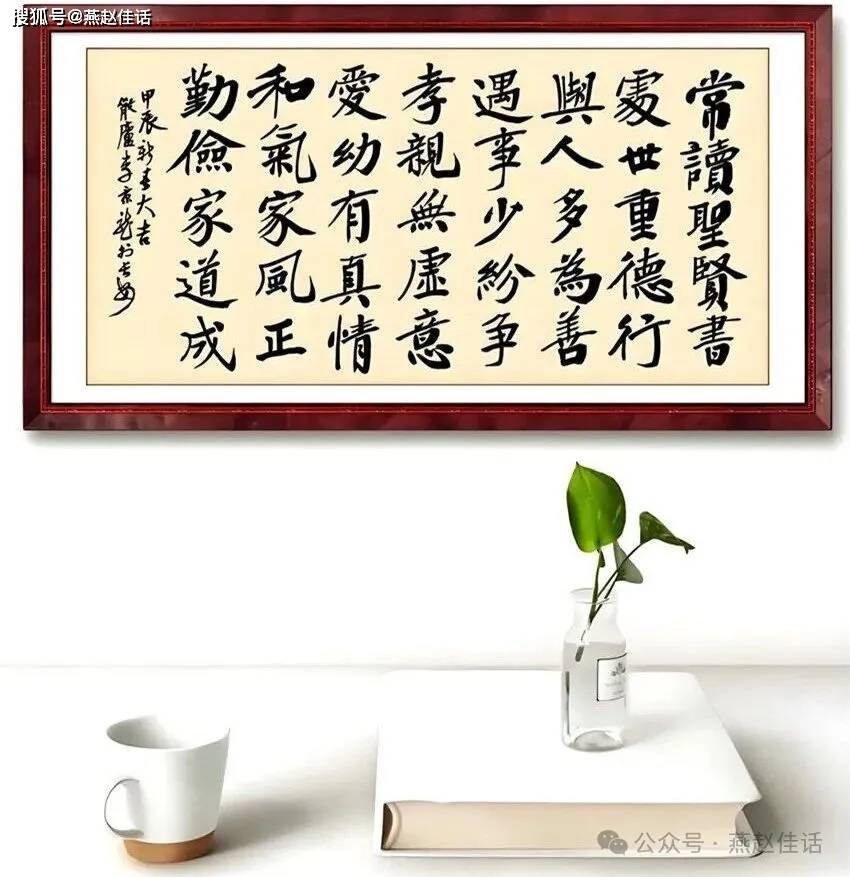 搜狐号@燕赵佳话
常讀聖賢書
處世重德行
與人多為善
遇事少紛爭
孝親無虛意
愛幼有真情
和氣家風正
勤儉家道成
甲辰新春大吉
公众号·燕赵佳话